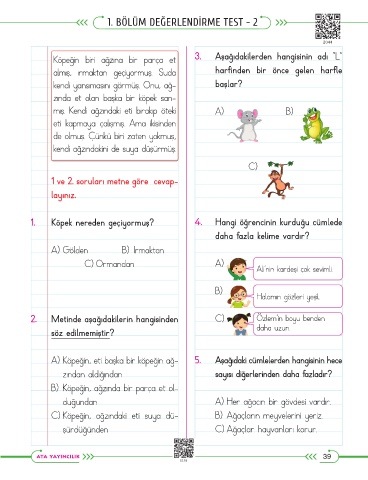 1. BÖLÜM DEĞERLENDİRME TEST - 2
Köpeğin biri ağzına bir parça et
almış, ırmaktan geçiyormuş. Suda
kendi yansımasını görmüş. Onu, ağ-
zında et olan başka bir köpek san-
mış. Kendi ağzındaki eti bırakıp öteki
eti kapmaya çalışmış. Ama ikisinden
de olmuş. Çünkü biri zaten yokmuş,
kendi ağzındakini de suya düşürmüş.
1 ve 2. soruları metne göre cevap-
layınız.
1. Köpek nereden geçiyormuş?
A) Gölden B) Irmaktan
C) Ormandan
2. Metinde aşağıdakilerin hangisinden
söz edilmemiştir?
A) Köpeğin, eti başka bir köpeğin ağ-
zından aldığından
B) Köpeğin, ağzında bir parça et ol-
duğundan
C) Köpeğin, ağzındaki eti suya dü-
şürdüğünden
3. Aşağıdakilerden hangisinin adı "L"
harfinden bir önce gelen harfle
başlar?
A) B)
C)
4. Hangi öğrencinin kurduğu cümlede
daha fazla kelime vardır?
A) Ali'nin kardeşi çok sevimli.
B) Halamın gözleri yeşil.
C) Özlem'in boyu benden
daha uzun.
5. Aşağıdaki cümlelerden hangisinin hece
sayısı diğerlerinden daha fazladır?
A) Her ağacın bir gövdesi vardır.
B) Ağaçların meyvelerini yeriz.
C) Ağaçlar hayvanları korur.
ATA YAYINCILIK
39